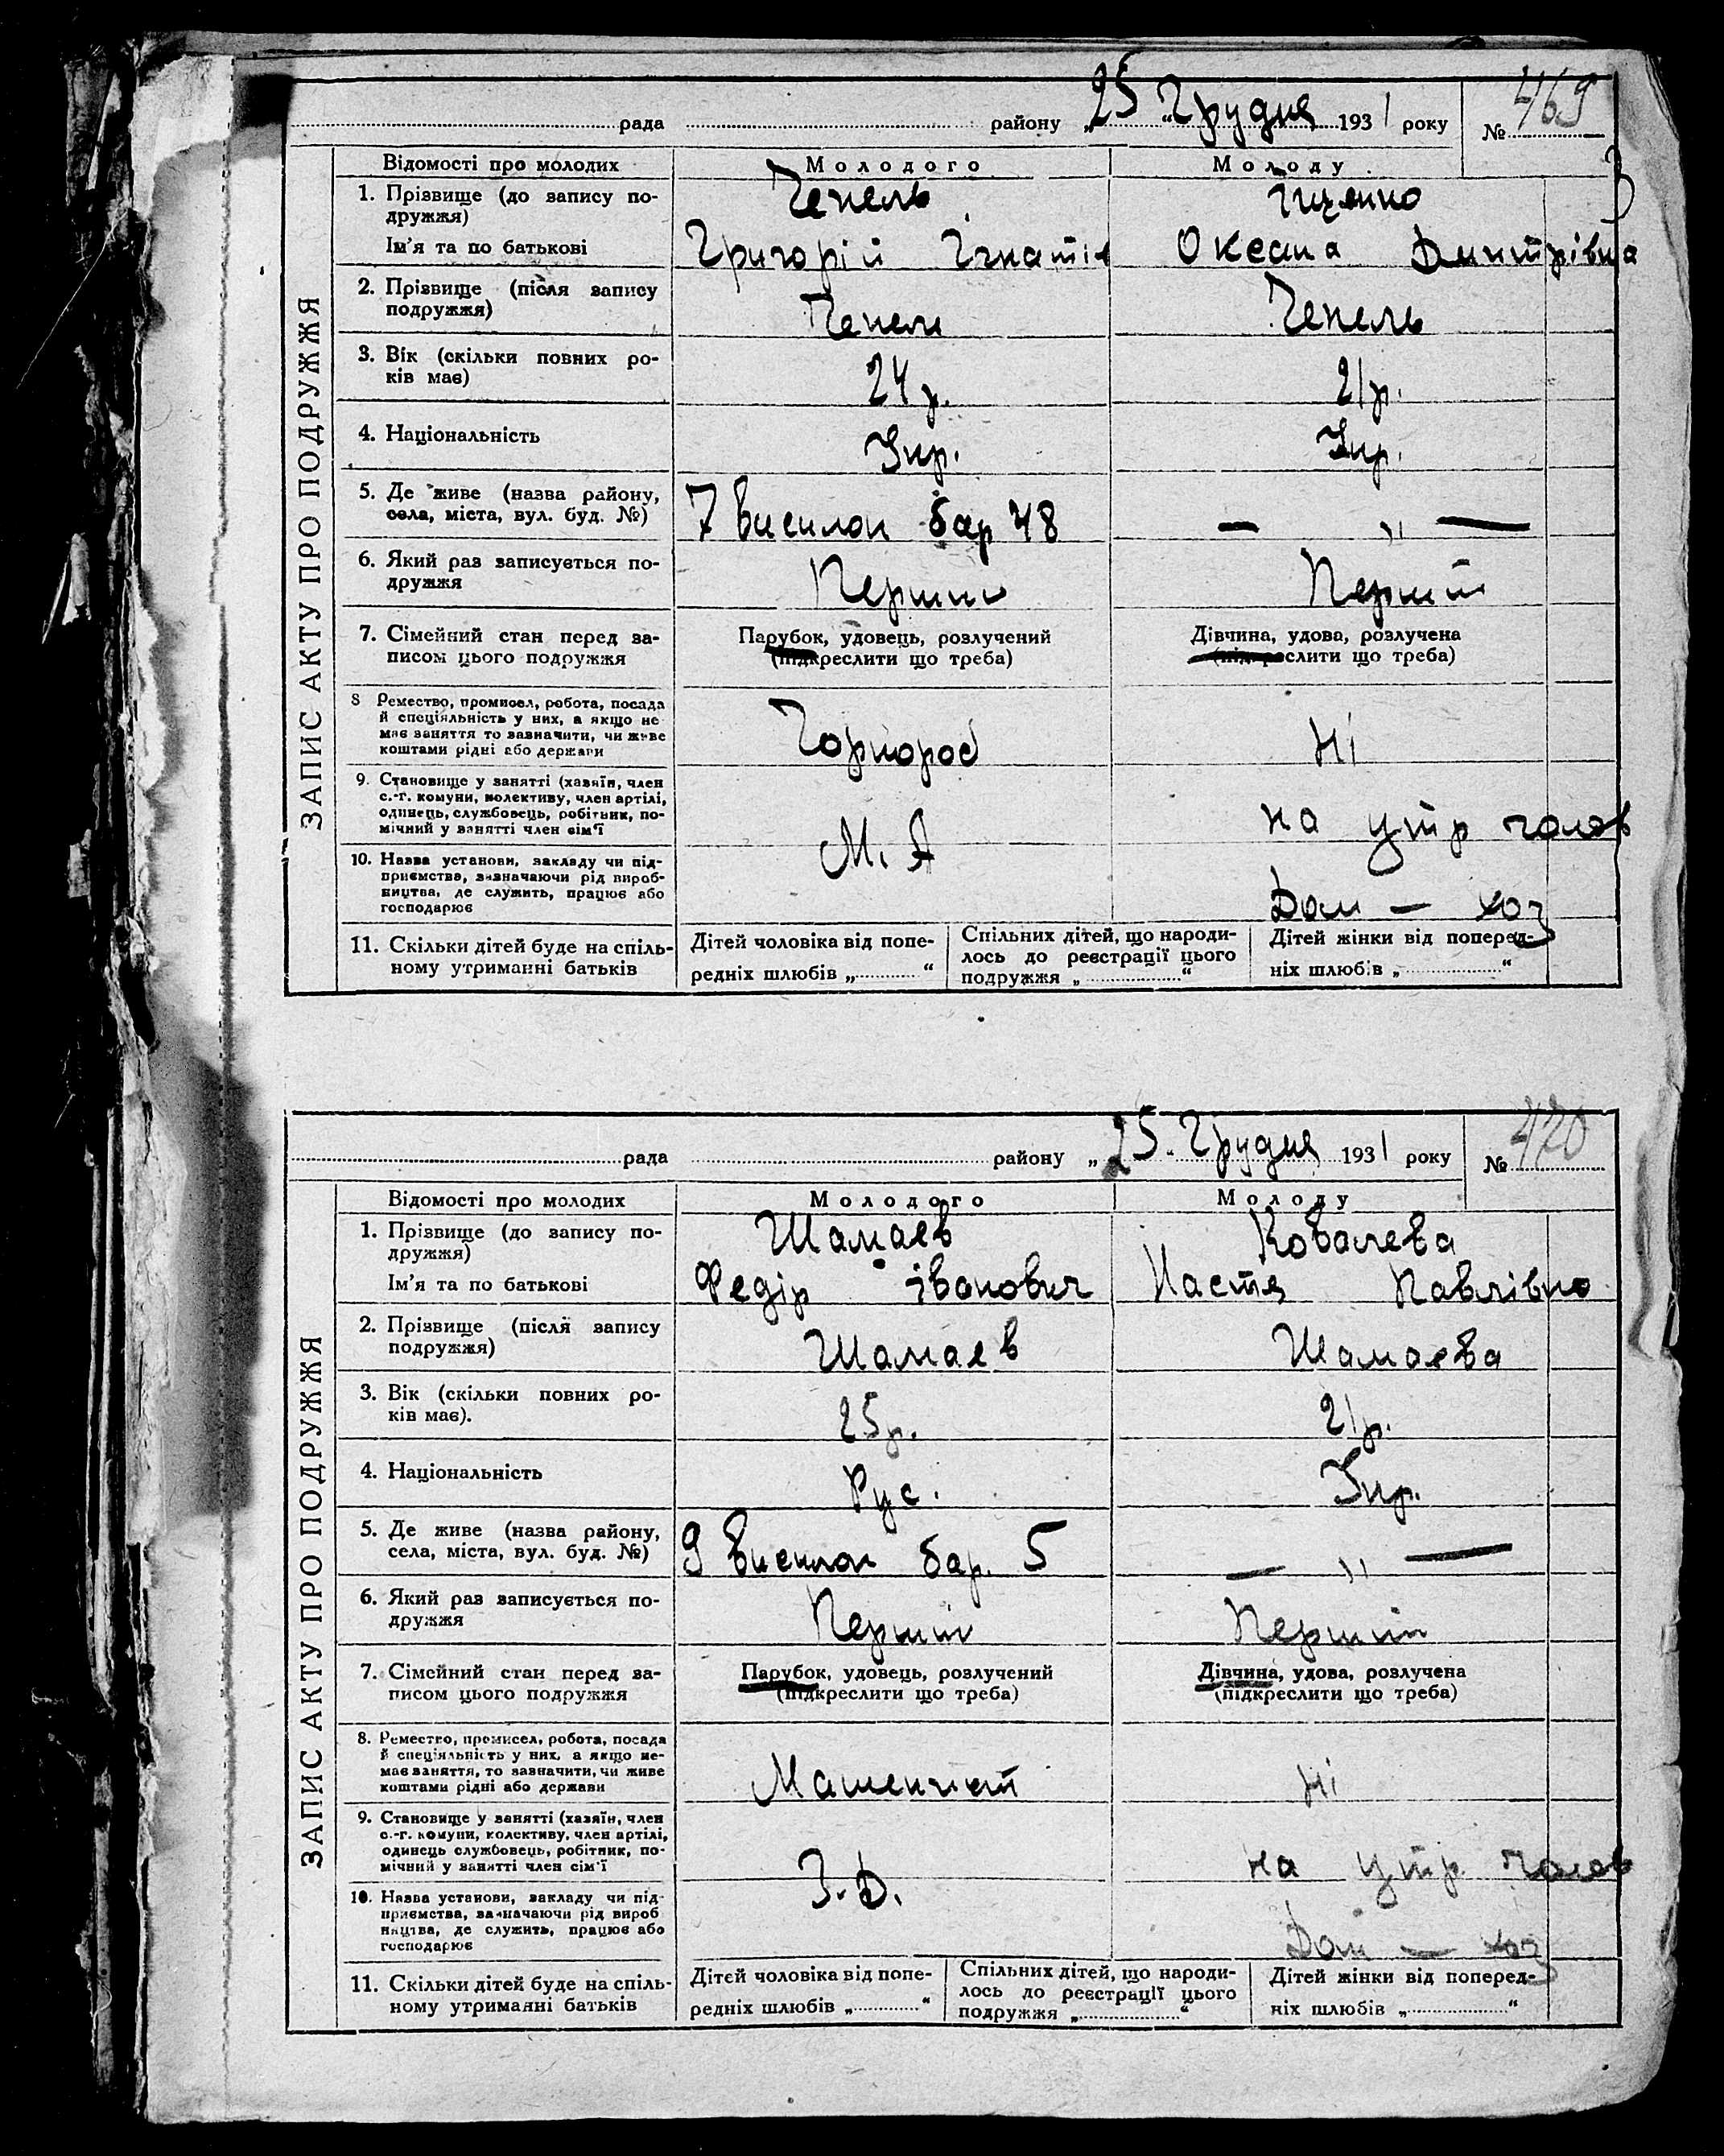 рада району „25 “ Грудня 1931 року № 469
Відомості про молодих Молодого Молоду
1. Прізвище (до запису по- Чепель Іщенко
дружжя)
Ім'я та по батькові Григорій Ігнатів Оксана Дмитрівна
2. Прізвище (після запису Чепель Чепель
подружжя)
3. Вік (скільки повних ро- 24 р. 21 р.
ків має)
4. Національність Укр. Укр.
5. Де живе (назва району,
села, міста, вул. буд. №) 7 висилок бар 48 — „ —
6. Який раз записується по- Перший Перший
дружжя
7. Сімейний стан перед за- Парубок, удовець, розлучений Дівчина, удова, розлучена
писом цього подружжя (підкреслити що треба) (підкреслити що треба)
8 Ремество, промисел, робота, посада
й спеціяльність у них, а якщо не
має заняття то зазначити, чи живе Чорнороб Ні
коштами рідні або держави
9. Становище у занятті (хазяїн, член
с.-г. комуни, колективу, член артілі,
одинець, службовець, робітник, по- на утр чолов
мічний у занятті член сім'ї М. А
10. Назва установи, закладу чи під-
приємства, зазначаючи рід вироб-
ництва, де служить, працює або Дом — хоз
господарює
11. Скільки дітей буде на спіль- Дітей чоловіка від попе- Спільних дітей, що народи- Дітей жінки від поперед-
ному утриманні батьків редніх шлюбів „ “ лось до реєстрації цього ніх шлюбів „ “
подружжя „ “
ЗАПИС АКТУ ПРО ПОДРУЖЖЯ
рада району „25 “ Грудня 1931 року № 470
Відомості про молодих Молодого Молоду
1. Прізвище (до запису по- Шамаев Ковалева
дружжя)
Ім'я та по батькові Федір Іванович Настя Павлівна
2. Прізвище (після запису Шамаев Шамаева
подружжя)
3. Вік (скільки повних ро- 25 р. 21 р.
ків має).
4. Національність Рус. Укр.
5. Де живе (назва району,
села, міста, вул. буд. №) 9 висилок бар. 5 — „ —
6. Який раз записується по- Перший Перший
дружжя
7. Сімейний стан перед за- Парубок, удовець, розлучений Дівчина, удова, розлучена
писом цього подружжя (підкреслити що треба) (підкреслити що треба)
8. Ремество, промисел, робота, посада
й спеціяльність у них, а якщо не-
має заняття, то зазначити, чи живе Машеніст Ні
коштами рідні або держави
9. Становище у занятті (хазяїн, член
с.-г. комуни, колективу, член артілі,
одинець службовець, робітник, по- на утр. чолов
мічний у занятті член сім'ї З. Д.
10. Назва установи, закладу чи під-
приємства, зазначаючи рід вироб
ництва, де служить, працює або Дом — хоз
господарює
11. Скільки дітей буде на спіль- Дітей чоловіка від попе- Спільних дітей, що народи- Дітей жінки від поперед-
ному утриманні батьків редніх шлюбів „ “ лось до реєстрації цього ніх шлюбів „ “
подружжя „ “
ЗАПИС АКТУ ПРО ПОДРУЖЖЯ